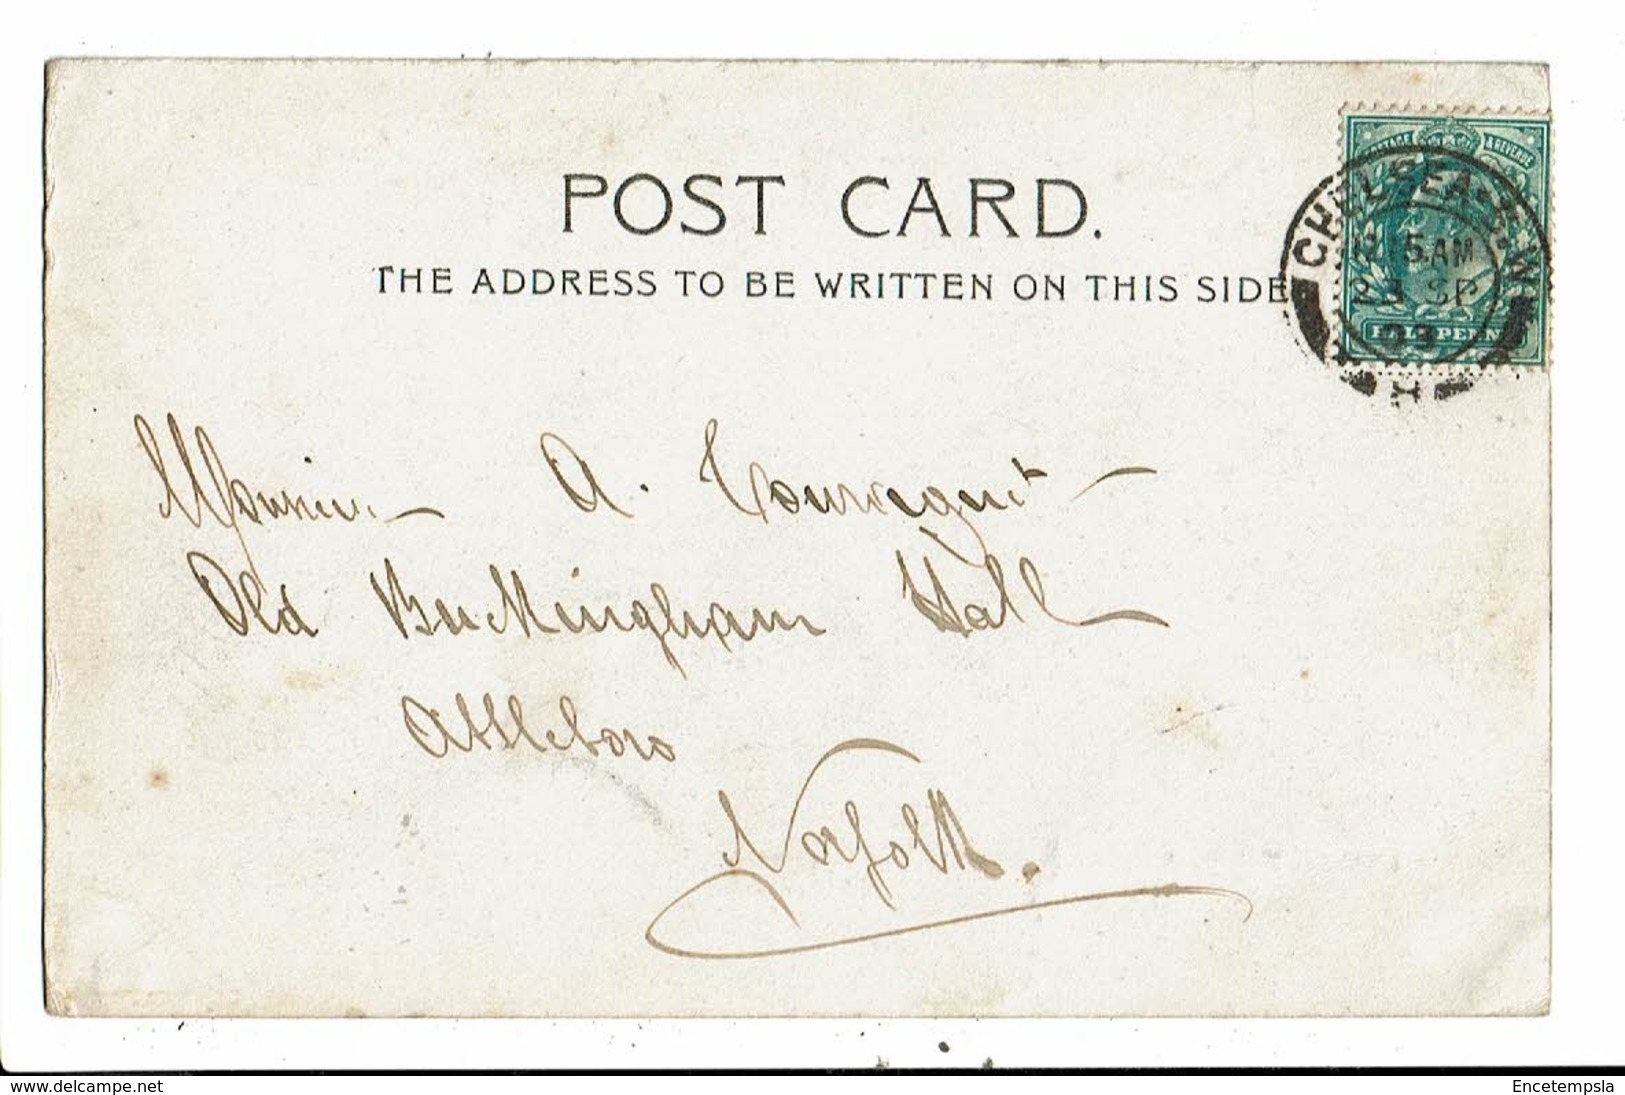 POST CARD.
THE ADDRESS TO BE WRITTEN ON THIS SIDE
POSTAGE & REVENUE
CHELSEA S.W.
15 AM
23 SP
03
HALFPENNY
Monsieur A.
Old Buckingham Hall
Attleboro
Norfolk.
www.delcampe.net
Encetempsla